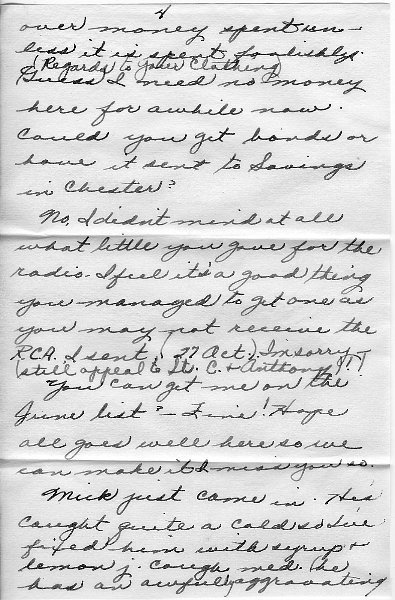 4
over money spent un-
less it is spent foolishly.
(Regards to your Clothing)
Guess I need no money
here for awhile now.
Could you get bonds or
have it sent to Savings
in Chester?
No, I didn't mind at all
what little you gave for the
radio. I feel it's a good thing
you managed to get one as
you may not receive the
RCA. I sent, (27 Oct.) I'm sorry
(still appeal to St. C. + Anthony!!)
You can get me on the
June list? - Fine! Hope
all goes well here so we
can make it. I miss you so.
Mick just came in. He's
caught quite a cold so I've
fixed him with syrup +
lemon j. cough med. (he
has an awful, aggravating